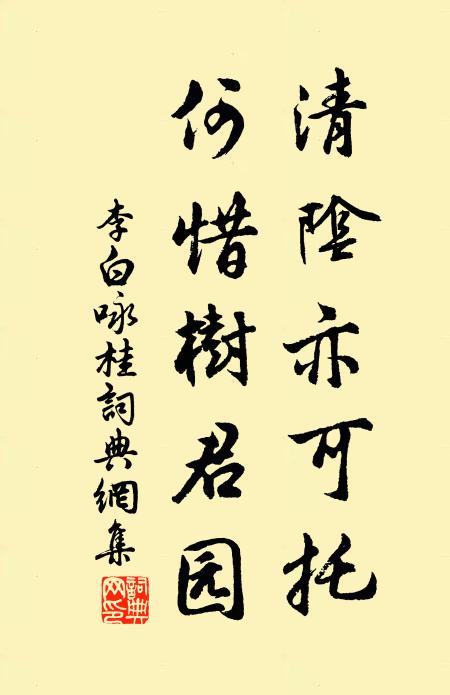 清陰亦可托
何惜樹君园
李白咏桂詞典網集
詞典网印